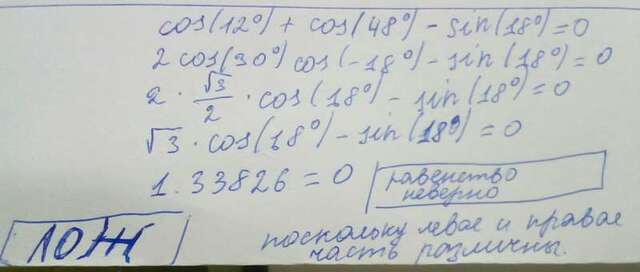 cos(12°) + cos(48°) - sin(18°) = 0
2 cos(30°) cos(-18°) - sin(18°) = 0
2 · √3/2 · cos(18°) - sin(18°) = 0
√3 · cos(18°) - sin(18°) = 0
1.33826 = 0
равенство
неверно
ЛОЖ
поскольку левае и правае
часть различны.